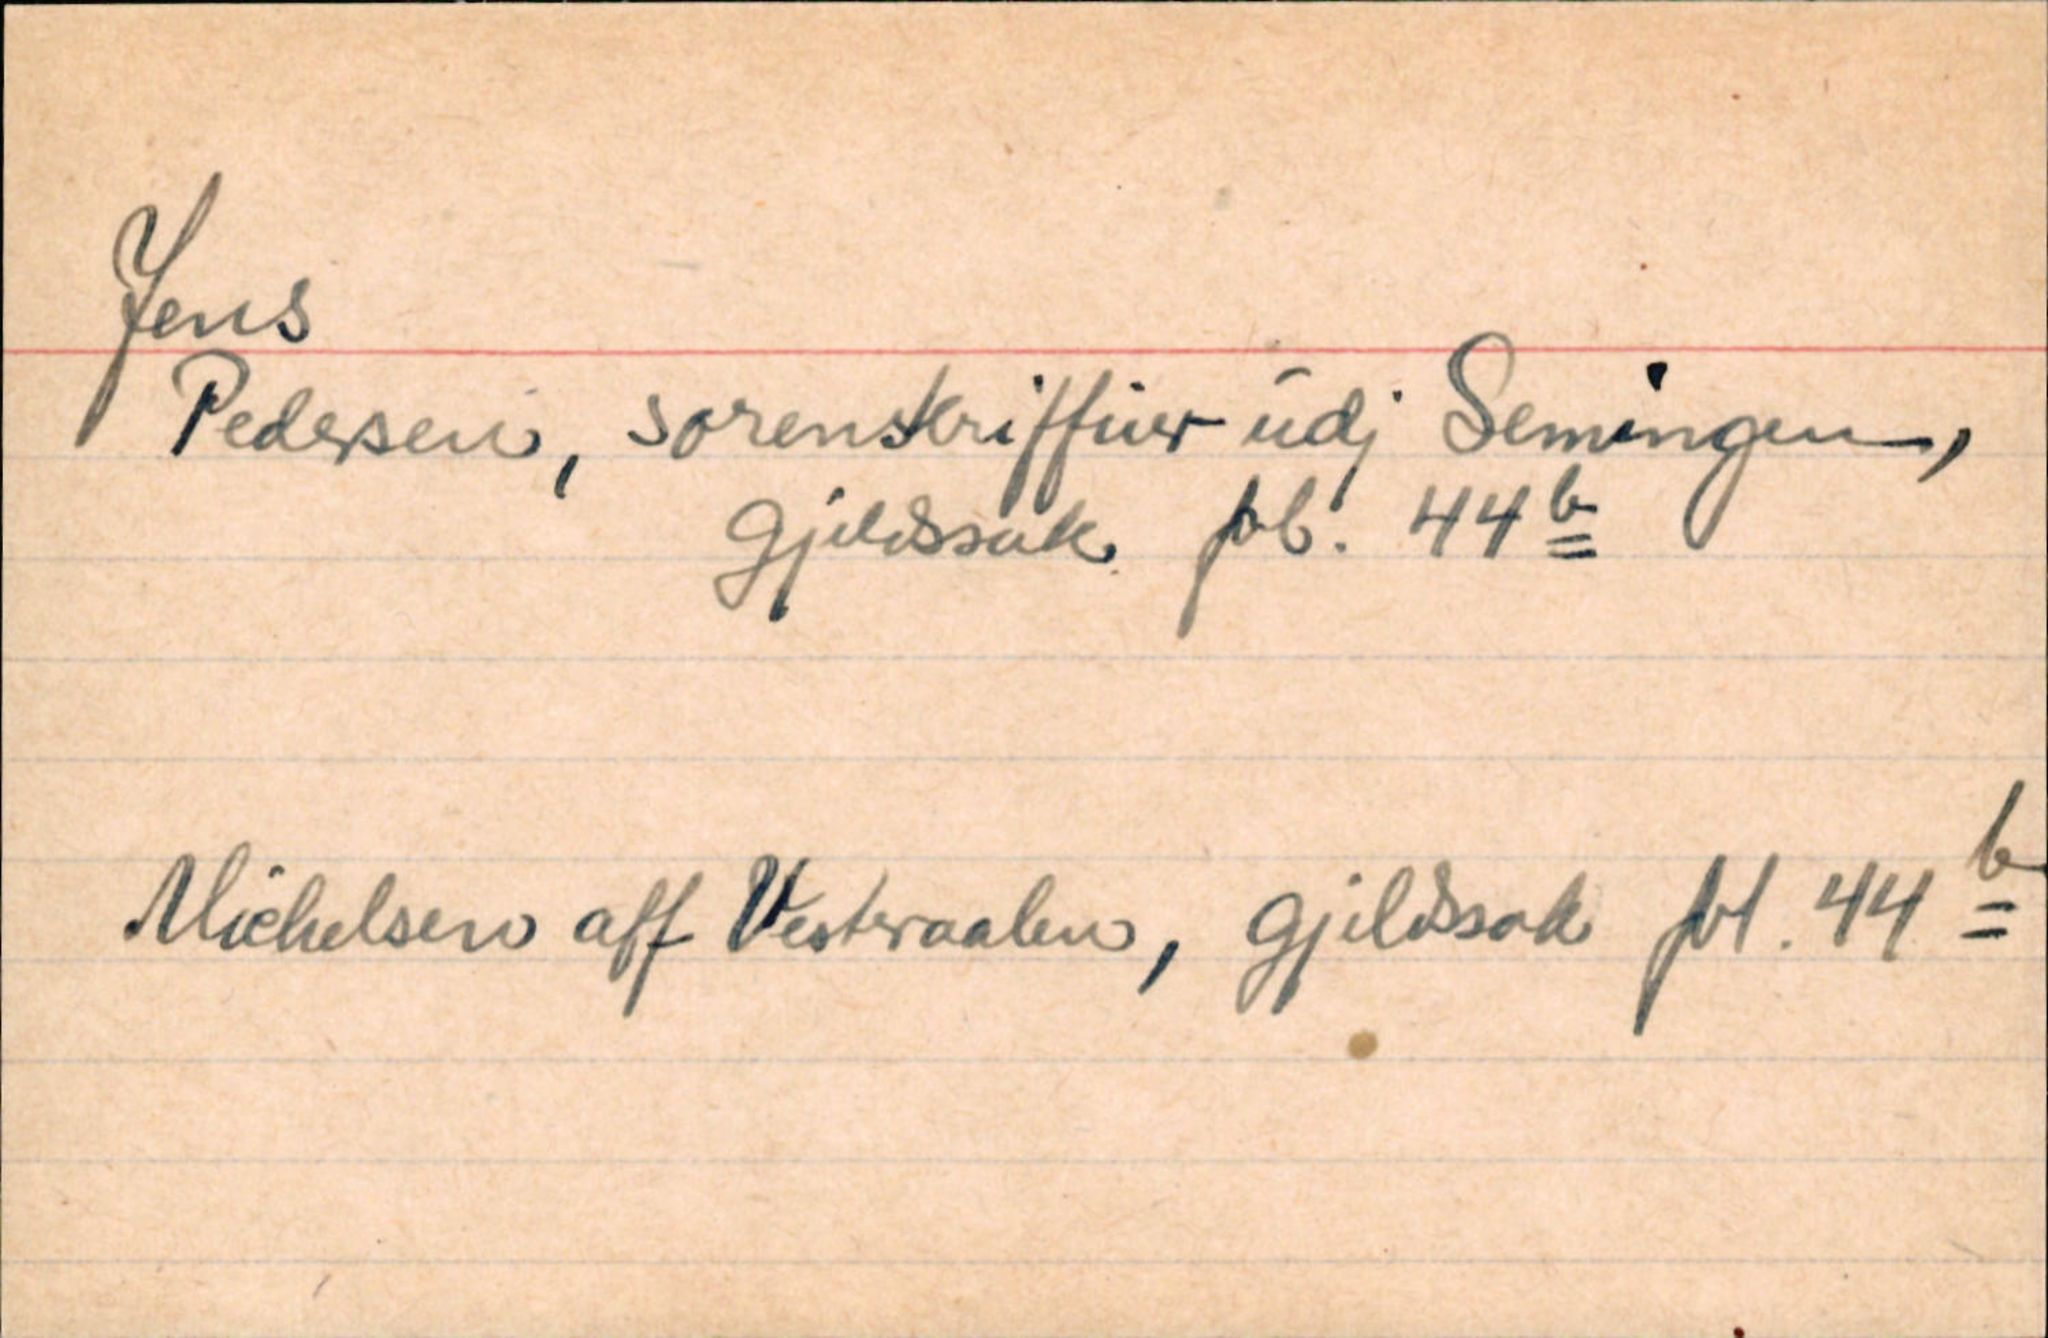 Jens
Pedersen, sorenskriffuer udj Semingen,
gjeldssak fol. 44b
Michelsen aff Vesteraalen, gjeldssak fol. 44b